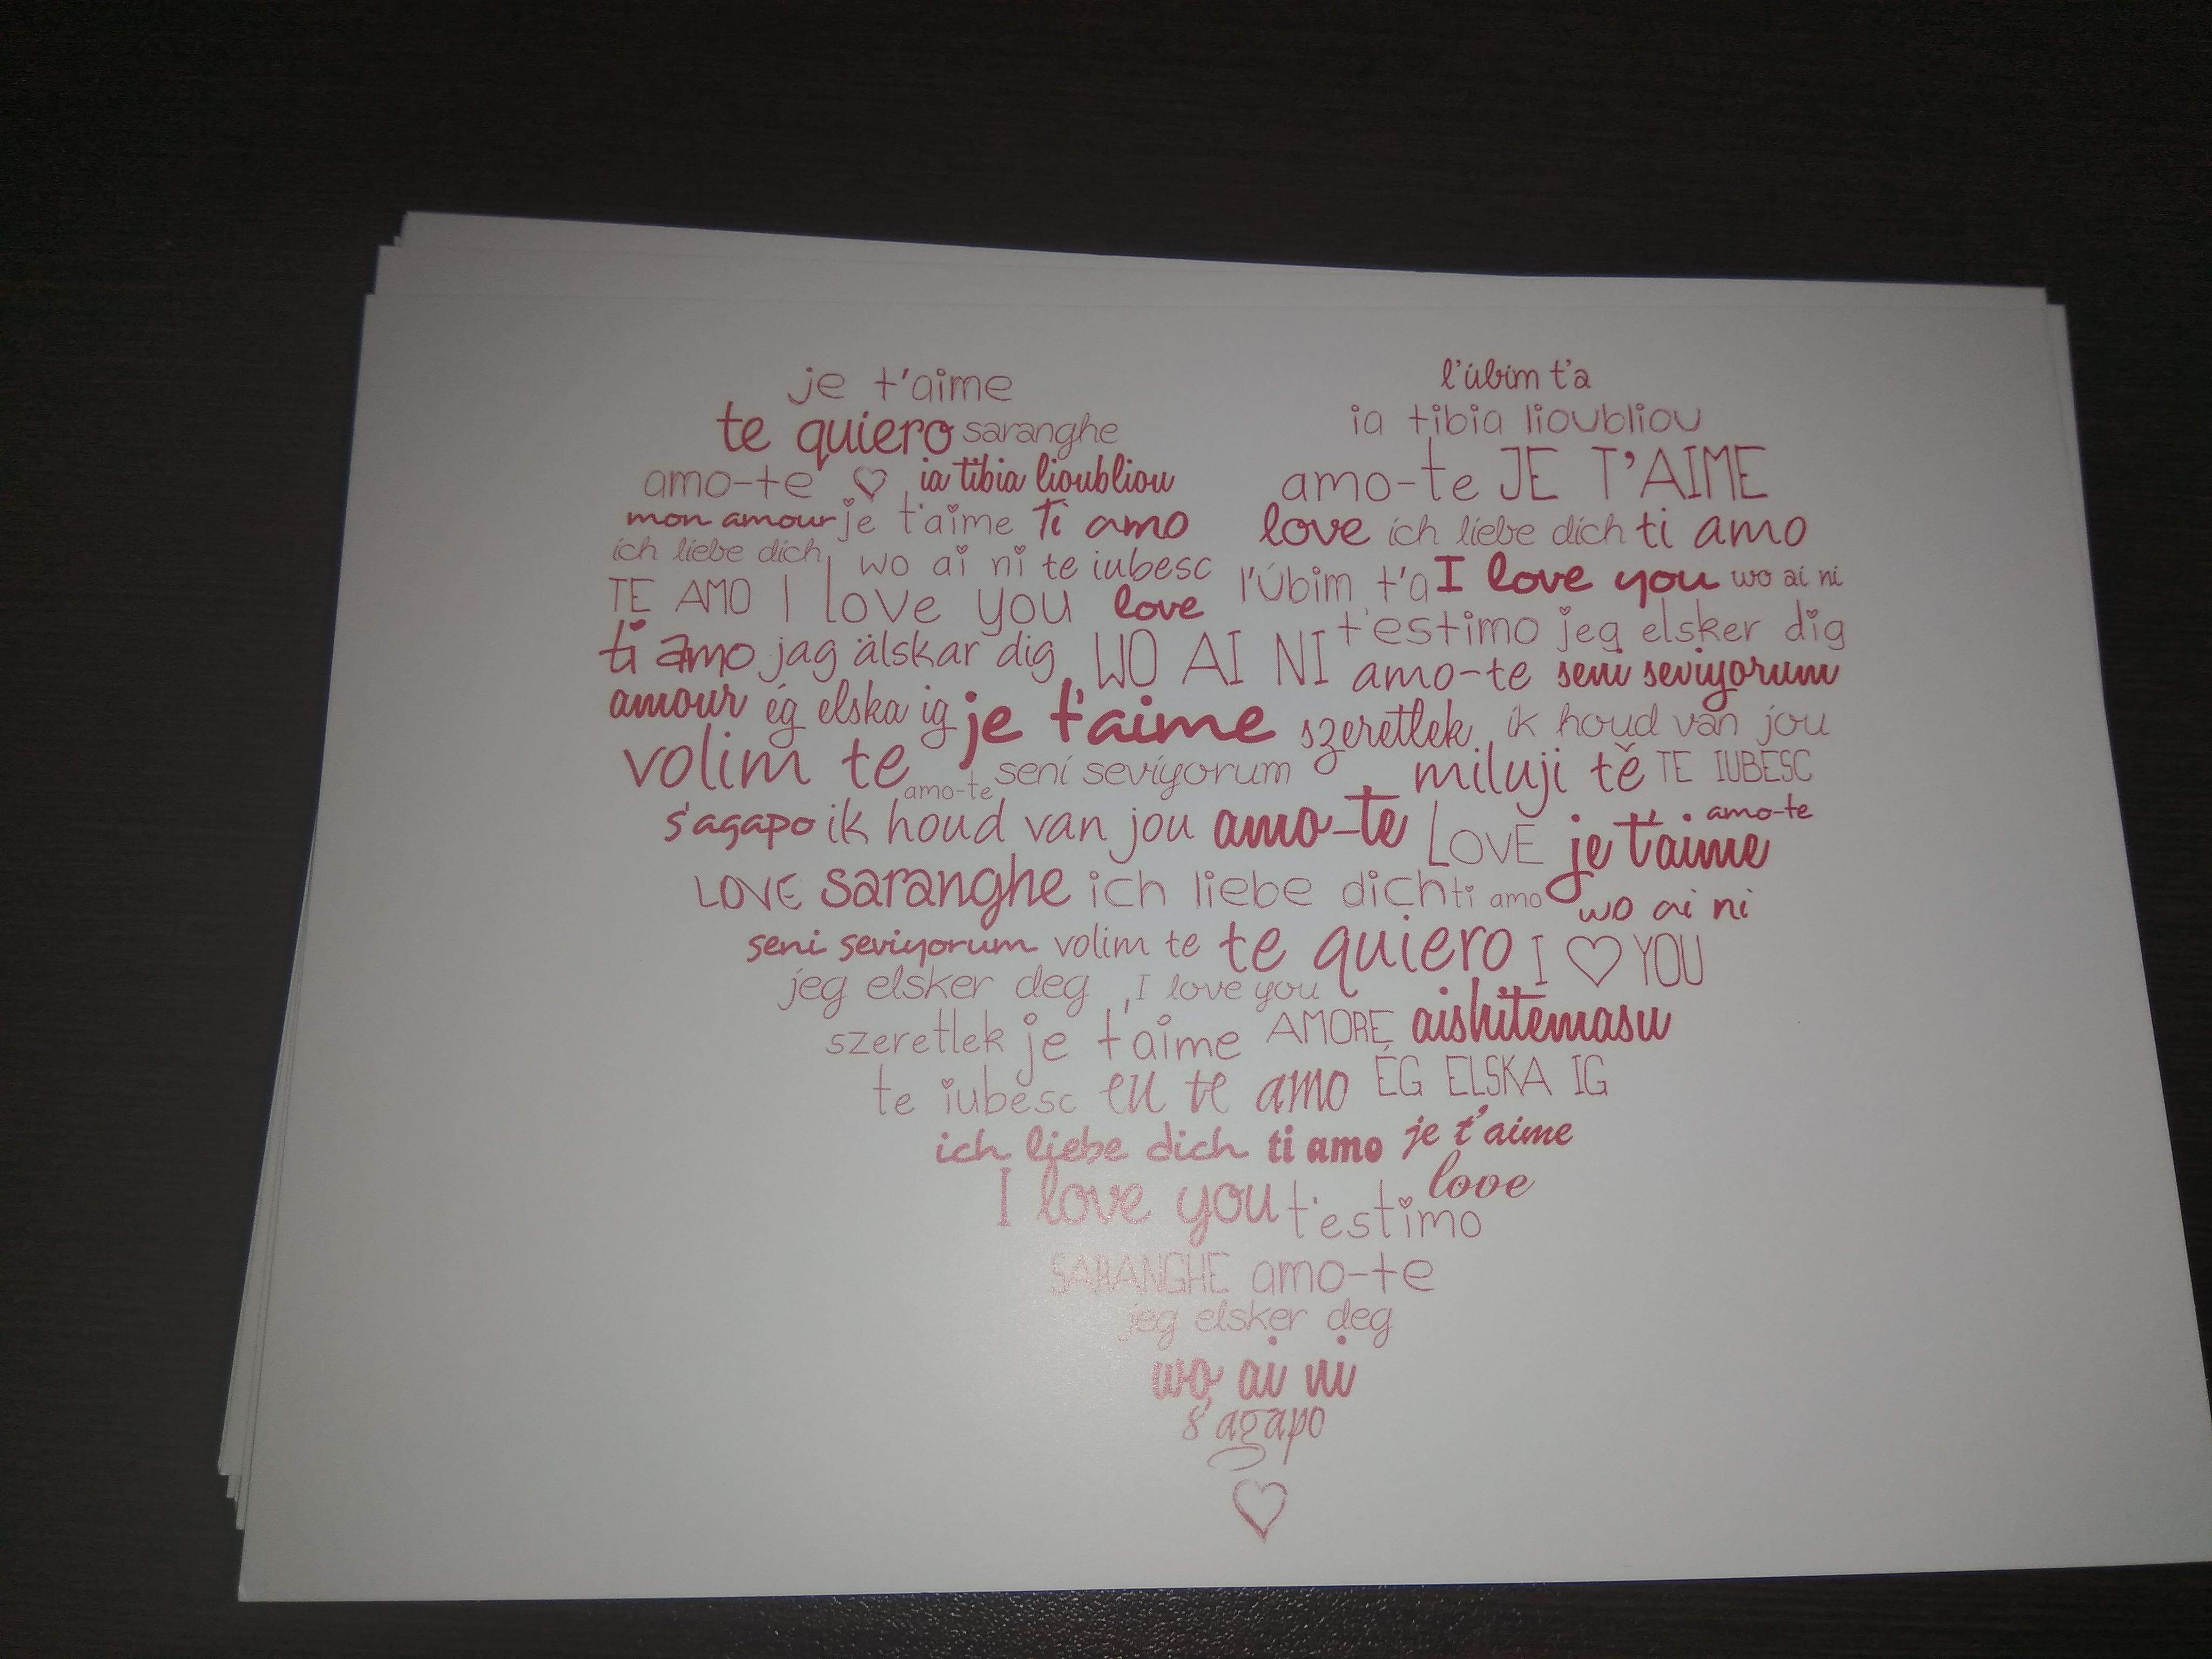 je t'aime
l'úbim t'a
te quiero saranghe
ia tibia lioubliou
amo-te ♡ ia tibia lioubliou
amo-te JE T'AIME
mon amour je t'aime Ti amo
love ich liebe dich ti amo
ich liebe dich wo ai ni te iubesc
l'úbim t'a I love you wo ai ni
TE AMO I love you love
t'estimo jeg elsker dig
ti amo jag älskar dig WO AI NI
amo-te seni seviyorum
amour ég elska ig je t'aime szeretlek ik houd van jou
volim te amo-te seni seviyorum miluji tě TE IUBESC
s'agapo ik houd van jou amo-te LOVE je t'aime amo-te
LOVE saranghe ich liebe dich ti amo wo ai ni
seni seviyorum volim te te quiero I ♡ YOU
jeg elsker deg I love you
szeretlek je t'aime AMORE aishitemasu
te iubesc eu te amo ÉG ELSKA IG
ich liebe dich ti amo je t'aime
I love you t'estimo love
SARANGHE amo-te
jeg elsker deg
wo ai ni
s'agapo
♡